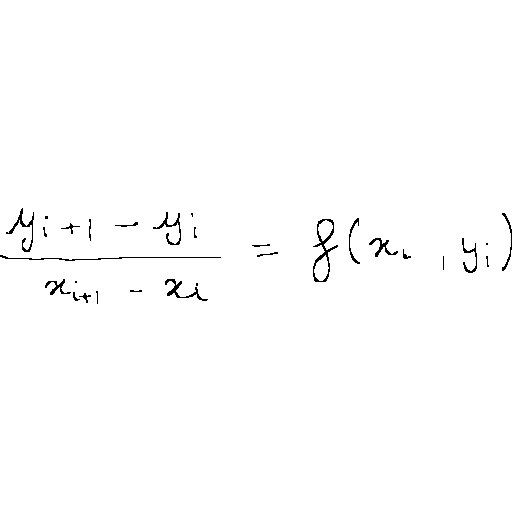 \frac{y_{i+1} - y_i}{x_{i+1} - x_i} = f(x_i, y_i)